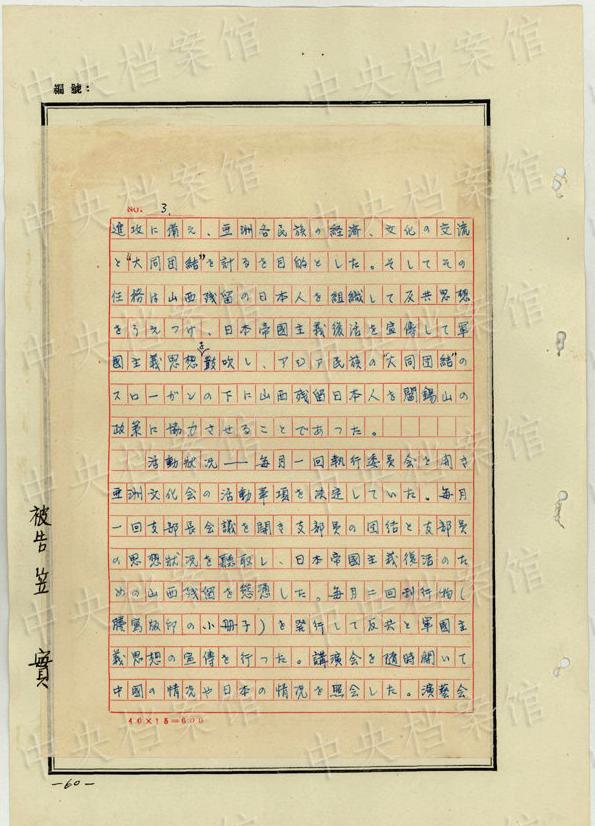 編號：
NO. 3.
進攻に備え、亜洲各民族の経済、文化の交流
と"大同団結"を計るを目的とした。そしてその
任務は山西残留の日本人を組織して反共思想
をうえつけ、日本帝國主義復活を宣傳して軍
國主義思想を鼓吹し、アジア民族の"大同団結"の
スローガンの下に山西残留日本人を閻錫山の
政策に協力させることであった。
活動状況——毎月一回執行委員会を開き
亜洲文化会の活動事項を決定していた。毎月
一回支部長会議を開き支部員の団結と支部員
の思想状況を聽取し、日本帝國主義復活のた
めの山西残留を慫慂した。毎月二回刊行物(
謄寫版印の小册子)を発行して反共と軍國主
義思想の宣傳を行った。講演会を随時開いて
中國の情况や日本の情況を照会した。演藝会
40×15=600
被告 笠 實
—60—
中央档案馆